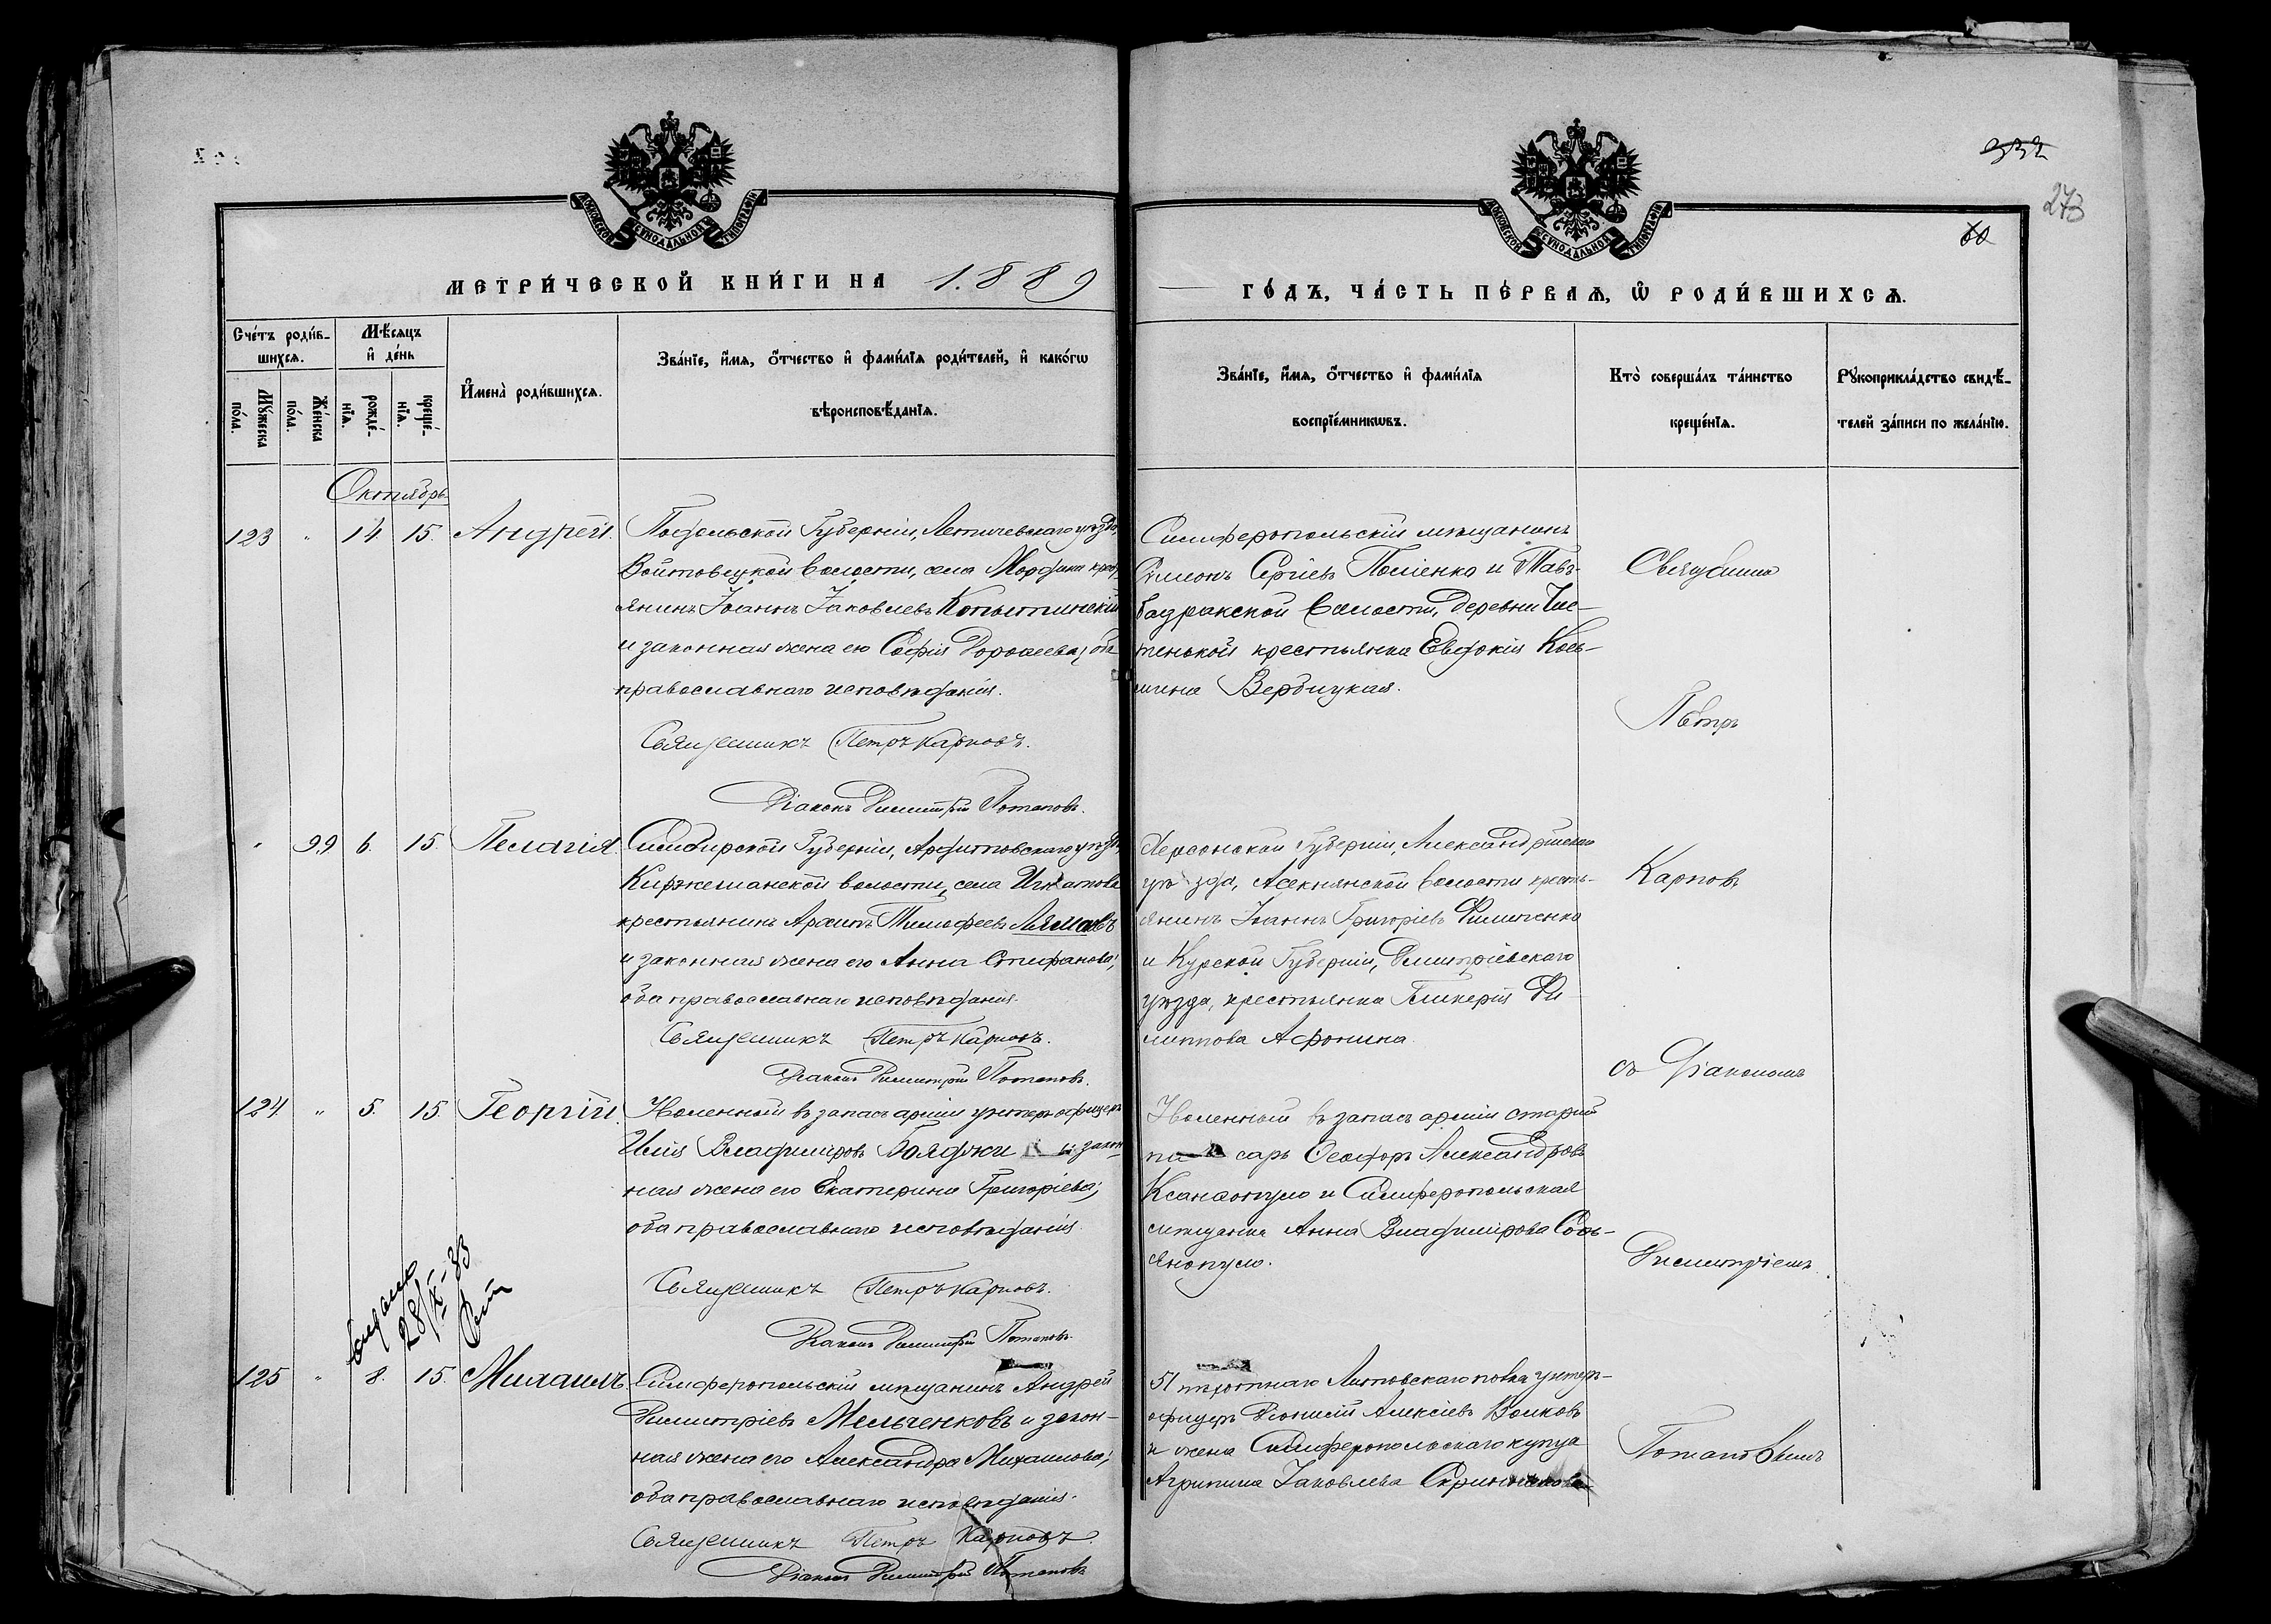 332
273
60
МОСКОВСКОЙ СѴНОДАЛЬНОЙ ТИПОГРАФІИ
МОСКОВСКОЙ СѴНОДАЛЬНОЙ ТИПОГРАФІИ
МЕТРИ́ЧЕСКОЙ КНИ́ГИ НА 1889
ГО́ДЪ, ЧА́СТЬ ПЕ́РВАѦ, Ѡ҆ РОДИ́ВШИХСѦ.
Сче́тъ роди́в-
шихсѧ.
Мꙋ́жеска по́ла.
Же́нска по́ла.
Мѣ́сѧцъ
и҆ де́нь
рожде́-нїѧ.
креще́-нїѧ.
И҆мена̀ роди́вшихсѧ.
Зва́нїе, и҆́мѧ, ѻ҆́тчество и҆ фами́лїѧ роди́телей, и҆ како́гѡ
вѣроисповѣ́данїѧ.
Зва́нїе, и҆́мѧ, ѻ҆́тчество и҆ фами́лїѧ
воспрїе́мникѡвъ.
Кто̀ соверша́лъ та́инство
креще́нїѧ.
Рꙋкоприкла́дство свидѣ́-
телей за́писи по жела́нїю.
Октябрь
123 " 14 15. Андрей.
Подольской Губерніи, Летичевскаго уѣзда,
Войтовецкой волости, села Мордина крест-
янинъ Іоаннъ Іаковлевъ Копытинскій
и законная жена его Софія Дорофеева; оба
православнаго исповѣданія.
Священникъ Петръ Карповъ.
Діаконъ Димитрій Потаповъ.
Симферопольскій мѣщанинъ
Симонъ Сергіевъ Поліенко и Тав-
базракской волости, деревни Чис-
тенькой крестьянка Евдокія Кось-
мина Вербицкая.
" 99 6. 15. Пелагія.
Симбирской Губерніи, Ардатовскаго уѣзда,
Киржеманской волости, села Игнатова
крестьянинъ Архипъ Тимофеевъ Лямаевъ
и законная жена его Анна Стефанова;
оба православнаго исповѣданія.
Священникъ Петръ Карповъ.
Діаконъ Димитрій Потаповъ.
Херсонской Губерніи, Александрійскаго
уѣзда, волости кресть-
янинъ Іоаннъ Григоріевъ Филипенко
и Курской Губерніи, Димитріевскаго
уѣзда, крестьянка Гликерія Фи-
липпова Афонина.
124 " 5. 15. Георгій.
Уволенный въ запасъ арміи унтеръ офицеръ
Илія Владиміровъ Бояджи и закон-
ная жена его Екатерина Григоріева;
оба православнаго исповѣданія.
Священникъ Петръ Карповъ.
Діаконъ Димитрій Потаповъ.
Уволенный въ запасъ арміи старшій
писарь Феодоръ Александровъ
Ксанаопуло и Симферопольская
мѣщанка Анна Владимірова Совь-
янопуло.
выдано
28/IX-33
125 " 8. 15. Михаилъ.
Симферопольскій мѣщанинъ Андрей
Димитріевъ Мельченковъ и закон-
ная жена его Александра Михаилова;
оба православнаго исповѣданія.
Священникъ Петръ Карповъ.
Діаконъ Димитрій Потаповъ
51 пѣхотнаго Литовскаго полка унтеръ-
офицеръ Діонисій Алексіевъ Волковъ
и жена Симферопольскаго купца
Агрипина Іаковлева
Священникъ
Петръ
Карповъ
съ Діакономъ
Димитріемъ
Потаповымъ